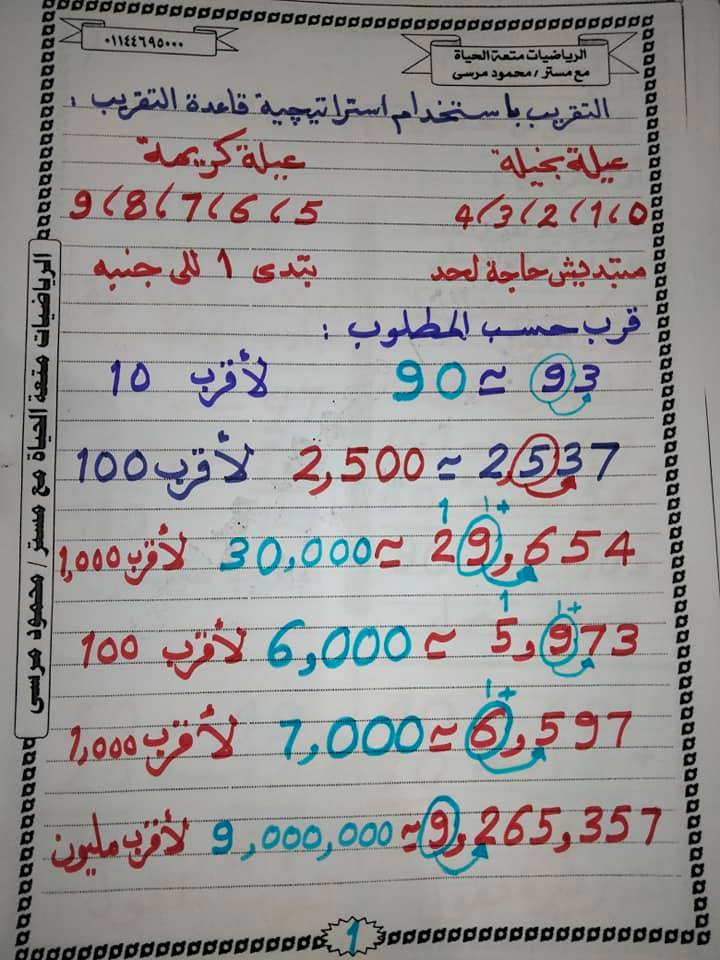 الرياضيات متعة الحياة
مع مستر / محمود مرسى
٠١١٤٤٦٩٥٠٠٠
التقريب باستخدام استراتيچية قاعدة التقريب :
عيلة بخيلة عيلة كريمة
0 ، 1 ، 2 ، 3 ، 4 5 ، 6 ، 7 ، 8 ، 9
مبتديش حاجة لحد بتدى 1 للى جنبه
قرب حسب المطلوب :
93 ≃ 90 لأقرب 10
2,537 ≃ 2,500 لأقرب 100
1 1+
29,654 ≃ 30,000 لأقرب 1,000
1 1+
5,973 ≃ 6,000 لأقرب 100
1+
6,597 ≃ 7,000 لأقرب 1,000
9,265,357 ≃ 9,000,000 لأقرب مليون
الرياضيات متعة الحياة مع مستر / محمود مرسى
1